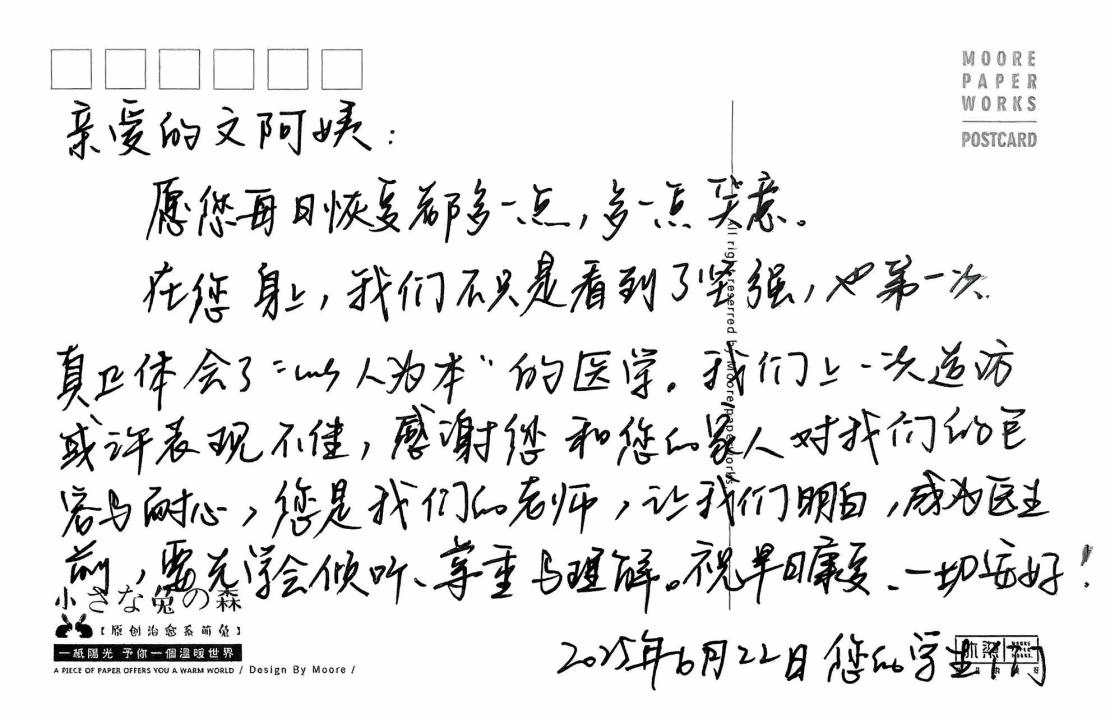 MOORE
PAPER
WORKS
POSTCARD
亲爱的文阿姨：
愿您每日恢复都多一点，多一点笑意。
在您身上，我们不只是看到了坚强，也第一次
真正体会了“以人为本”的医学。我们上一次造访
或许表现不佳，感谢您和您的家人对我们的包
容与耐心，您是我们的老师，让我们明白，成为医生
前，要先学会倾听、尊重与理解。祝早日康复、一切安好！
2025年6月22日 您的学生们
All right reserred by Moore paper works
小さな兔の森
【原创治愈系萌兔】
一紙陽光 予你一個溫暖世界
A PIECE OF PAPER OFFERS YOU A WARM WORLD / Design By Moore /